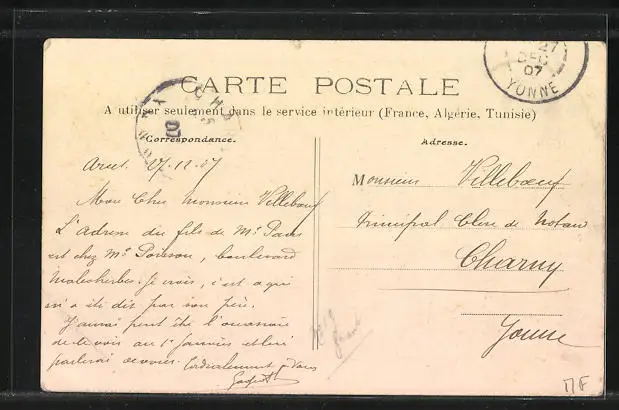 27
DEC
07
YONNE
CARTE POSTALE
A utiliser seulement dans le service intérieur (France, Algérie, Tunisie)
Correspondance.
Adresse.
27-12-07
Mon Cher Monsieur Villeboeuf
L'adresse du fils de Mr
est chez Mr Poisson, boulevard
Malesherbes. Je crois, c'est ce qui
m'a été dit par son père.
J'aurai peut être l'occasion
de le voir au 1er Janvier et lui
parlerai de vous. Cordialement à vous
Monsieur Villeboeuf
Principal Clerc de Notaire
Charny
Yonne